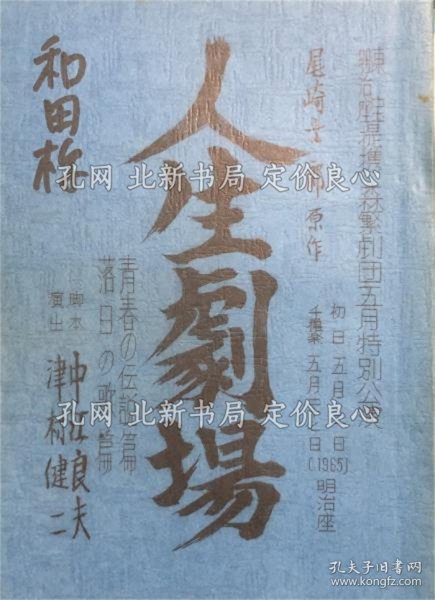 森繁劇団五月特別公演
初日 五月
(1965) 明治座
千穐楽 五月
尾崎士郎原作
人生劇場
青春の伝説
落日の歌
脚本
演出
中江良夫
津村健二
和田
孔网 北新书局 定价良心
孔网 北新书局 定价良心
孔网 北新书局 定价良心
孔夫子旧书网
www.kongfz.com